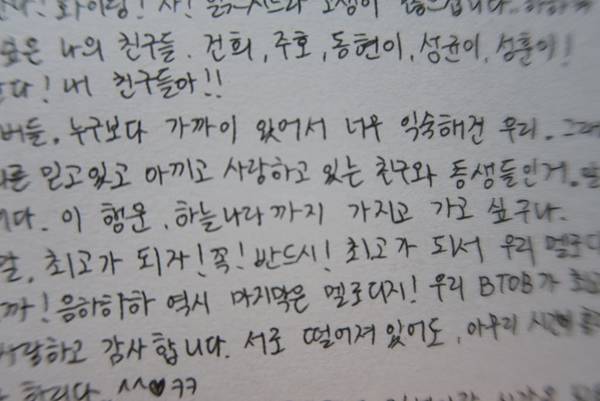 화이팅!
나의 친구들. 건희, 주호, 동현이, 성균이, 성훈이!
다! 내 친구들아!!
버들. 누구보다 가까이 있어서 너무 익숙해진 우리. 그래
믿고있고 아끼고 사랑하고 있는 친구와 동생들인거.
니다. 이 행운. 하늘나라까지 가지고 가고 싶구나.
최고가 되자! 꼭! 반드시! 최고가 되서 우리 멜로디
까! 음하하하 역시 마지막은 멜로디지! 우리 BTOB가 최고
사랑하고 감사합니다. 서로 떨어져있어도, 아무리 시간이
합니다. ^^♥ㅋㅋ